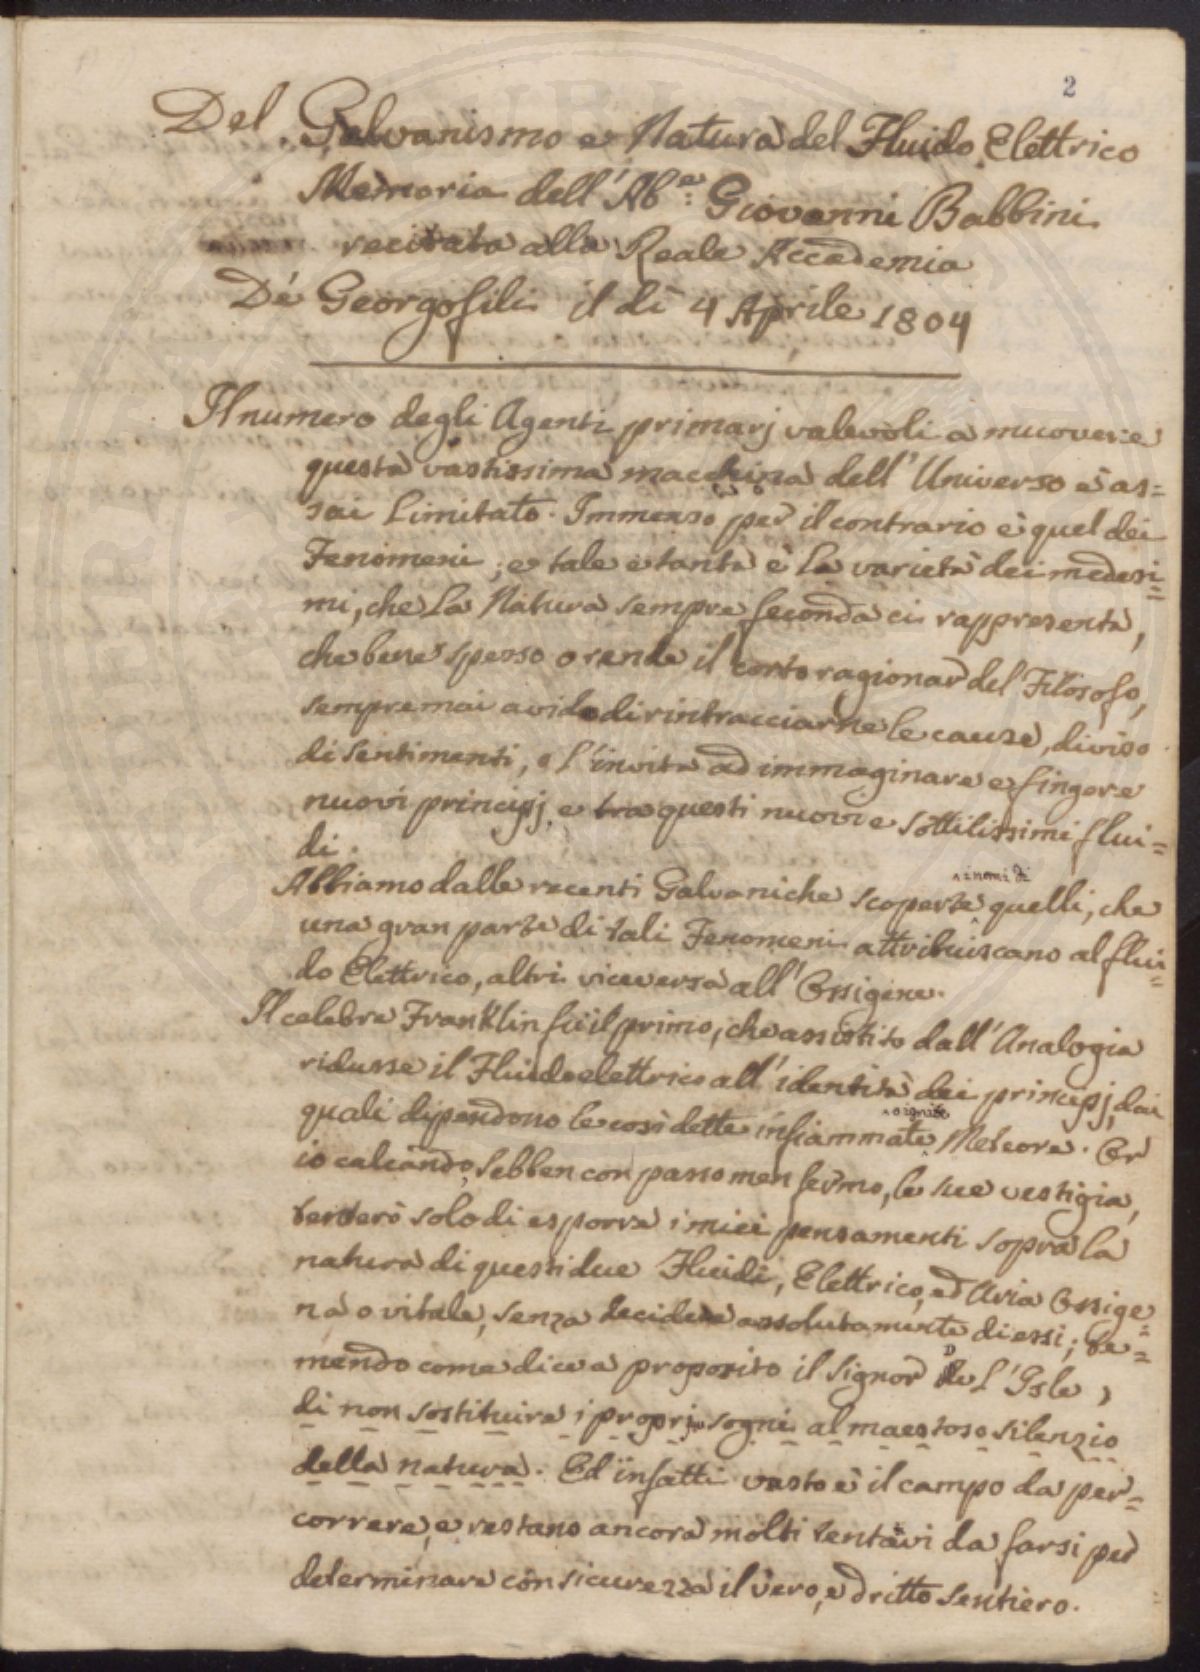 2
Del Galvanismo e Natura del Fluido Elettrico
Memoria dell'Ab.e Giovanni Babbini
recitata alla Reale Accademia
De' Georgofili il dì 4 Aprile 1804
Il numero degli Agenti primarj valevoli a muovere
questa vastissima macchina dell'Universo è as=
sai limitato. Immenso per il contrario è quel dei
Fenomeni, e tale e tanta è la varietà dei medesi=
mi, che la Natura sempre feconda ci rappresenta,
che bene spesso o rende il corto ragionar del Filosofo,
sempre mai avido di rintracciarne le cause, diviso
di sentimenti, o l'invita ad immaginare e fingere
nuovi principj, e tra questi nuovi e sottilissimi flui=
di.
Abbiamo dalle recenti Galvaniche scoperte i nomi di quelli, che
una gran parte di tali Fenomeni attribuiscano al flui=
do Elettrico, altri viceversa all'Ossigene.
Il celebre Franklin fù il primo, che assistito dall'Analogia
ridusse il Fluido elettrico all'identità dei principj, dai
quali dipendono le così dette infiammate o ignite Meteore. Or
io calcando, sebben con passo men fermo, le sue vestigia,
tenterò solo di esporre i miei pensamenti sopra la
natura di questi due Fluidi, Elettrico, ed Aria Ossige=
na o vitale, senza decidere assolutamente di essi; te=
mendo come dice a proposito il Signor De l'Isle,
di non sostituire i proprj sogni al maestoso silenzio
della natura. Ed infatti vasto è il campo da per=
correre, e restano ancora molti tentavi da farsi per
determinare con sicurezza il vero, e dritto sentiero.